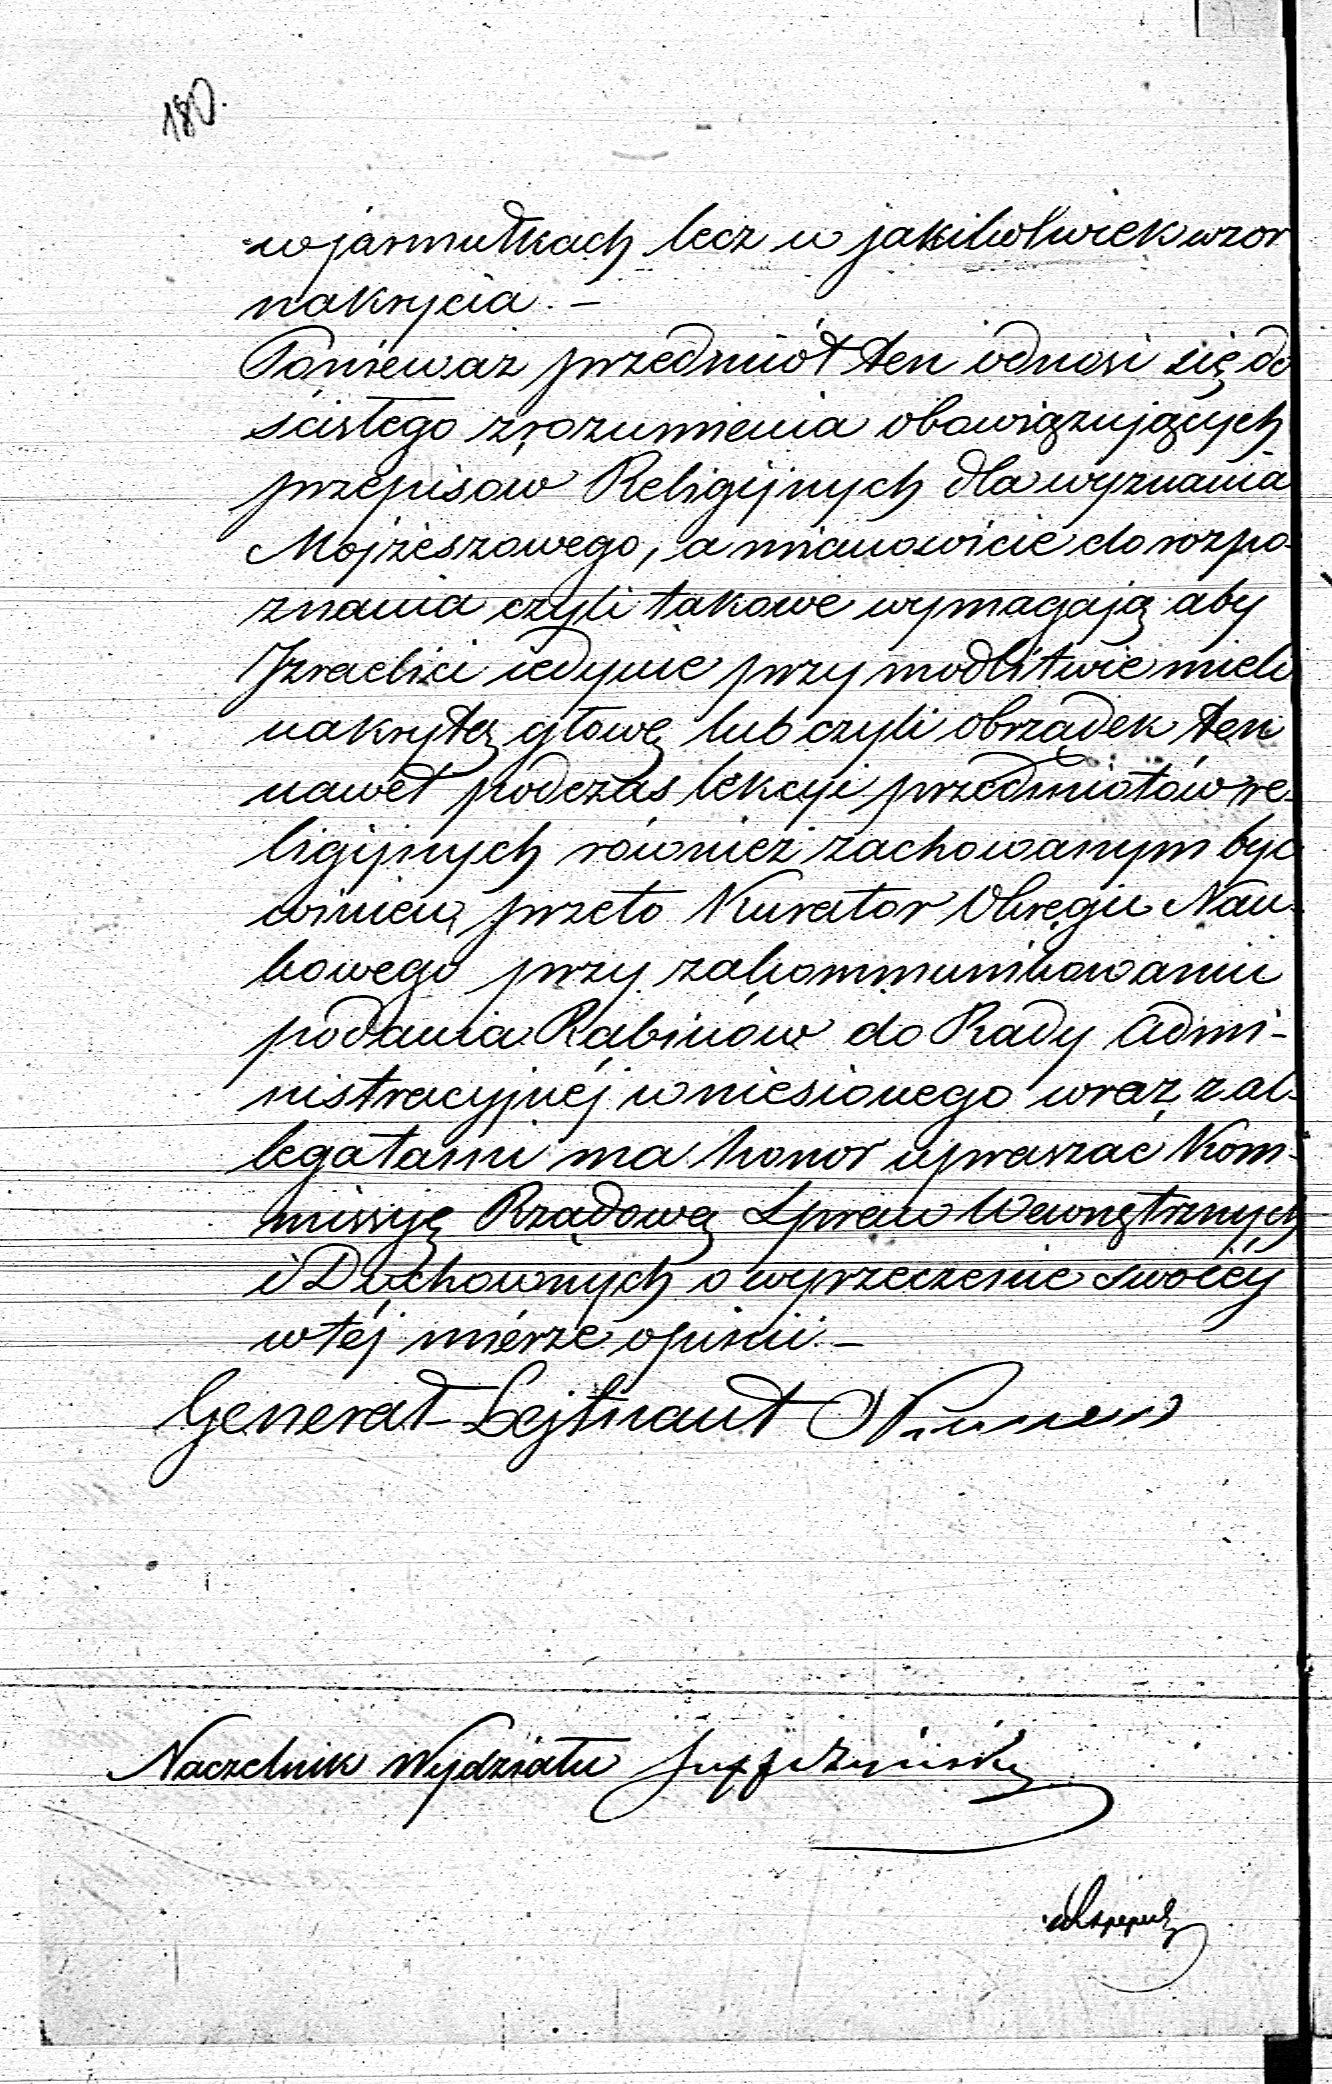 180.
w jarmułkach lecz w jakikolwiek wzor
nakrycia. –
Ponieważ przedmiót ten odnosi się do
ścisłego zrozumienia obowiązujących
przepisow Religijnych dla wyznania
Mojżeszowego, a mianowicie do rozpo-
znania czyli takowe wymagają aby
Izraelici iedynie przy modlitwie mieli
nakrytą głowę lub czyli obrządek ten
nawet podczas lekcyi przedmiotów re-
ligijnych również zachowanym być
winien, przeto Kurator Okręgu Nau-
kowego przy zakommunikowaniu
podania Rabinów do Rady Admi-
nistracyjnéj wniesionego wraz z al-
legatami ma honor upraszać Kom-
missyę Rządową Spraw Wewnętrznych
i Duchownych o wyrzeczenie swoiéy
w téj mierze opinii. –
Generał-Lejtnant
Naczelnik Wydziału